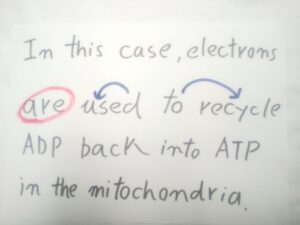 In this case, electrons
are used to recycle
ADP back into ATP
in the mitochondria.